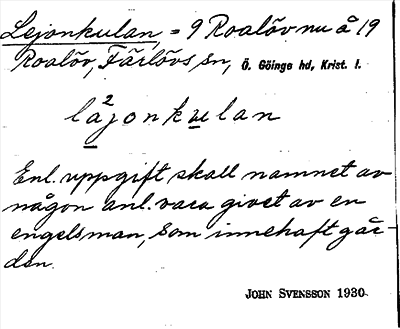 Lejonkulan, = 9 Roalöv nu å 19
Roalöv, Färlövs sn, Ö. Göinge hd, Krist. l.
la²jonkulan
Enl. uppgift skall namnet av
någon anl. vara givet av en
engelsman, som innehaft går-
den.
JOHN SVENSSON 1930.